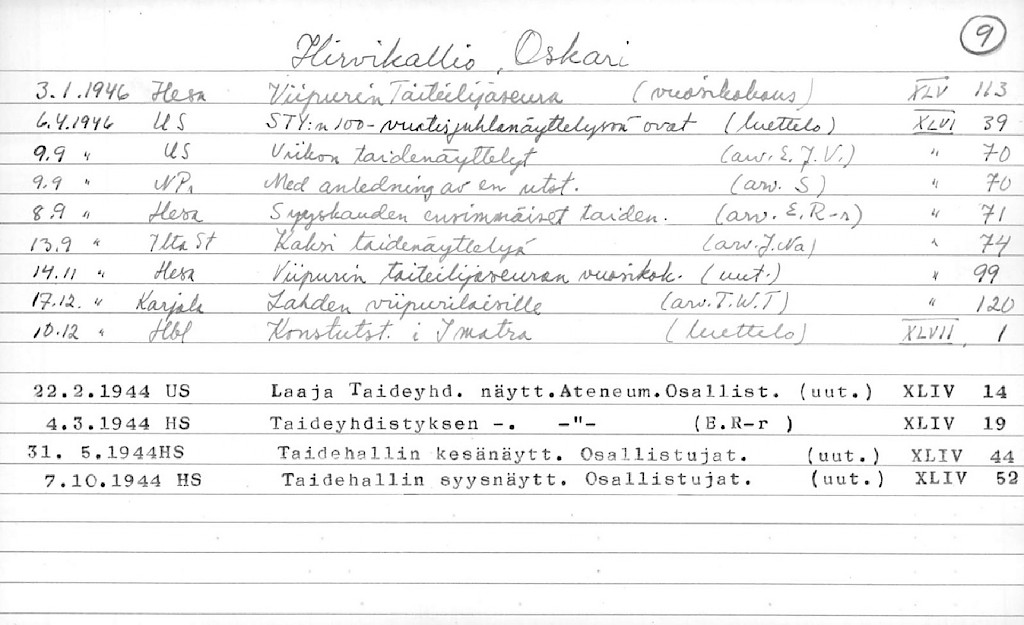 9
Hirvikallio, Oskari
3.1.1946 Hesa Viipurin Taiteilijaseura (vuosikokous) XLV 113
6.4.1946 US STY:n 100-vuotisjuhlanäyttelyssä ovat (luettelo) XLVI 39
9.9 " US Viikon taidenäyttelyt (arv. E.J.V.) " 70
9.9 " NPr Med anledning av en utst. (arv. S) " 70
8.9 " Hesa Syyskauden ensimmäiset taiden. (arv. E.R-r) " 71
13.9 " Ilta St Kaksi taidenäyttelyä (arv. J.Na) " 74
14.11 " Hesa Viipurin taiteilijaseuran vuosikok. (uut.) " 99
17.12. " Karjala Lahden viipurilaisille (arv. T.W.T) " 120
10.12 " Hbl Konstutst. i Imatra (luettelo) XLVII, 1
22.2.1944 US Laaja Taideyhd. näytt.Ateneum.Osallist. (uut.) XLIV 14
4.3.1944 HS Taideyhdistyksen -. -"- (E.R-r ) XLIV 19
31. 5.1944HS Taidehallin kesänäytt. Osallistujat. (uut.) XLIV 44
7.10.1944 HS Taidehallin syysnäytt. Osallistujat. (uut.) XLIV 52